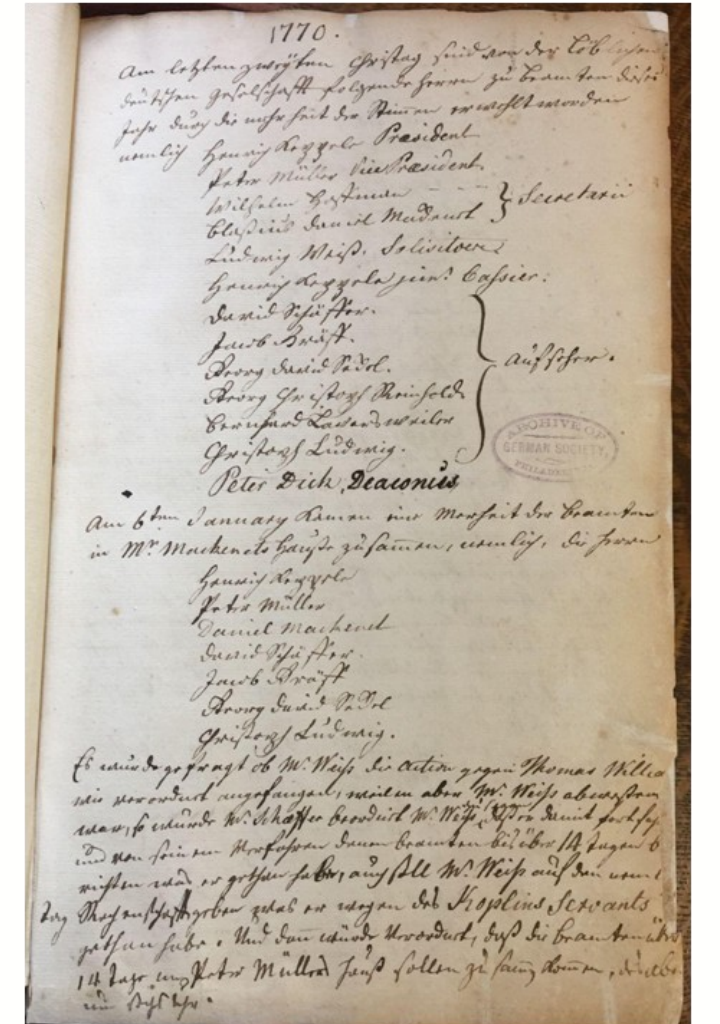 1770.
Am letzten zweyten Christag sind von der Löblichen
deütschen Geselschafft folgende Herrn zu Beamten dieses
Jahr durch die mehrheit der Stimmen erwehlt worden
nemlich Henrich Keppele Præsident
Peter Müller Vice Præsident
Wilhelm
Blasius Daniel Mackenet } Secretarii
Ludwig Weiß. Solicitor
Henrich Keppele jun: Cassier:
David Schäffer.
Jacob Kräfft.
Georg David Sekel. Aufseher.
Georg Christoph Reinhold
Bernhard Lawersweiler
Christoph Ludwig.
ARCHIVE OF
GERMAN SOCIETY,
PHILADELPHIA
Peter Dick, Deaconus
Am 6ten January Kamen eine Merheit der Beamten
in Mr Mackenets Hauße zusammen, nemlich, die Herrn
Henrich Keppele
Peter Müller
Daniel Mackenet
David Schäffer.
Jacob Kräfft
Georg David Sekel
Christoph Ludwig.
Es wurde gefragt ob Mr Weiss die Action gegen Thomas
wie verordnet angefangen, weilen aber Mr. Weiss abwesend
war, so wurde Mr. Schæffer beordert Mr. Weiss, daß er damit
und von seinem Verfahren denen beamten bis über 14 tagen
richten was er gethan habe, auch soll Mr. Weiss auf den
tag Rechenschafft geben was er wegen des Koplins Servants
gethan habe. Und dan wurde Verordnet, daß die beamten über
14 Tage in Peter Müllers Hauß sollen zusam Kommen,
um sechs uhr.